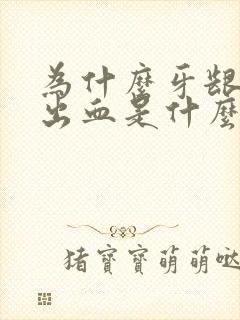 為什麼牙齦
出血是什麼
猪寶寶萌萌哒